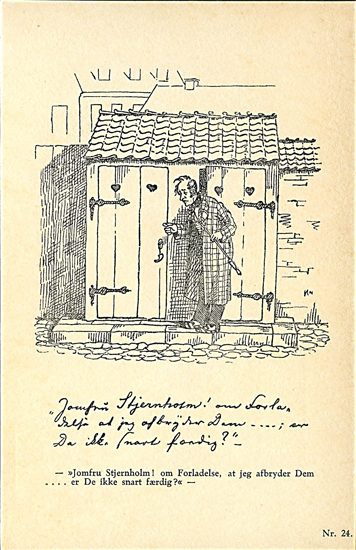 „Jomfru Stjernholm! om Forla-
delse at jeg afbryder Dem ----; er
De ikke snart færdig?"–
— »Jomfru Stjernholm! om Forladelse, at jeg afbryder Dem
.... er De ikke snart færdig?« —
Nr. 24.